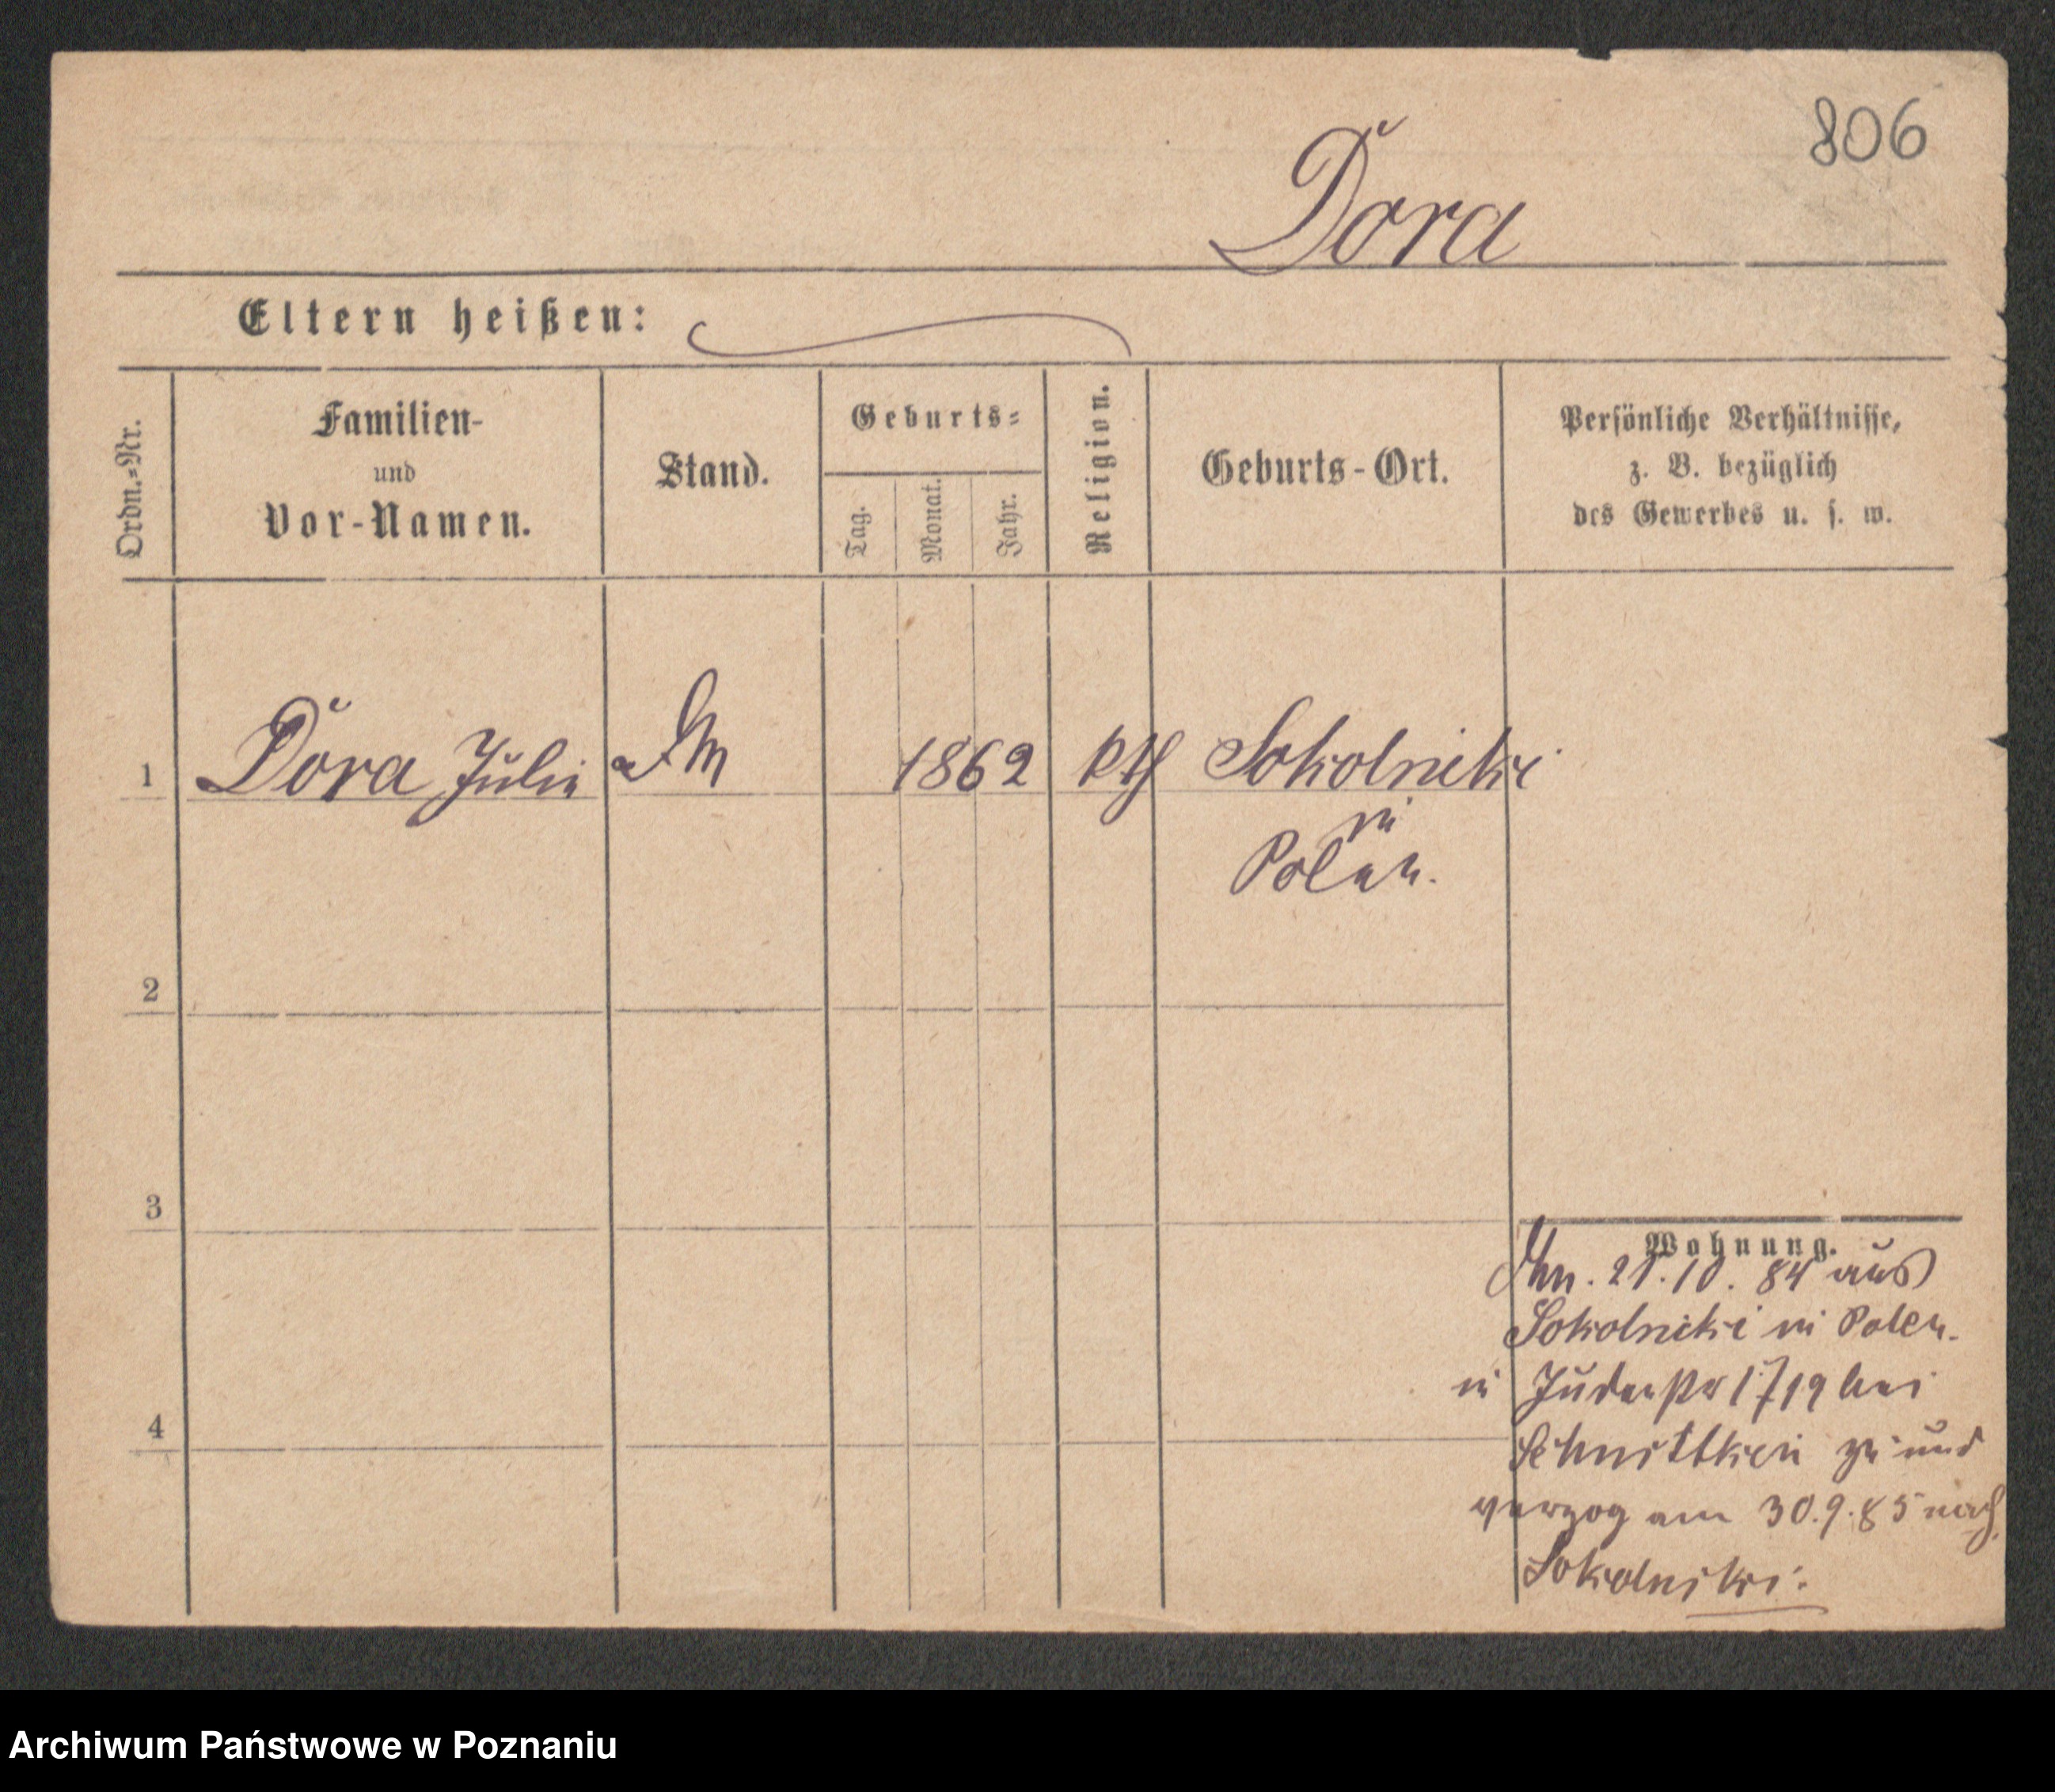 806
Dora
Eltern heißen:
Ordn.=Nr.
Familien-
und
Vor-Namen.
Stand.
Geburts=
Tag.
Monat.
Jahr.
Religion.
Geburts-Ort.
Persönliche Verhältnisse,
z. B. bezüglich
des Gewerbes u. s. w.
1
Dora Julie
1862
kth
Sokolniki
in
Polen.
2
3
4
Wohnung.
21.10.84 aus
Sokolniki in Polen.
in Judenstr 17/19 bei
Schnittkin zu und
verzog am 30.9.85 nach
Sokolniki.
Archiwum Państwowe w Poznaniu